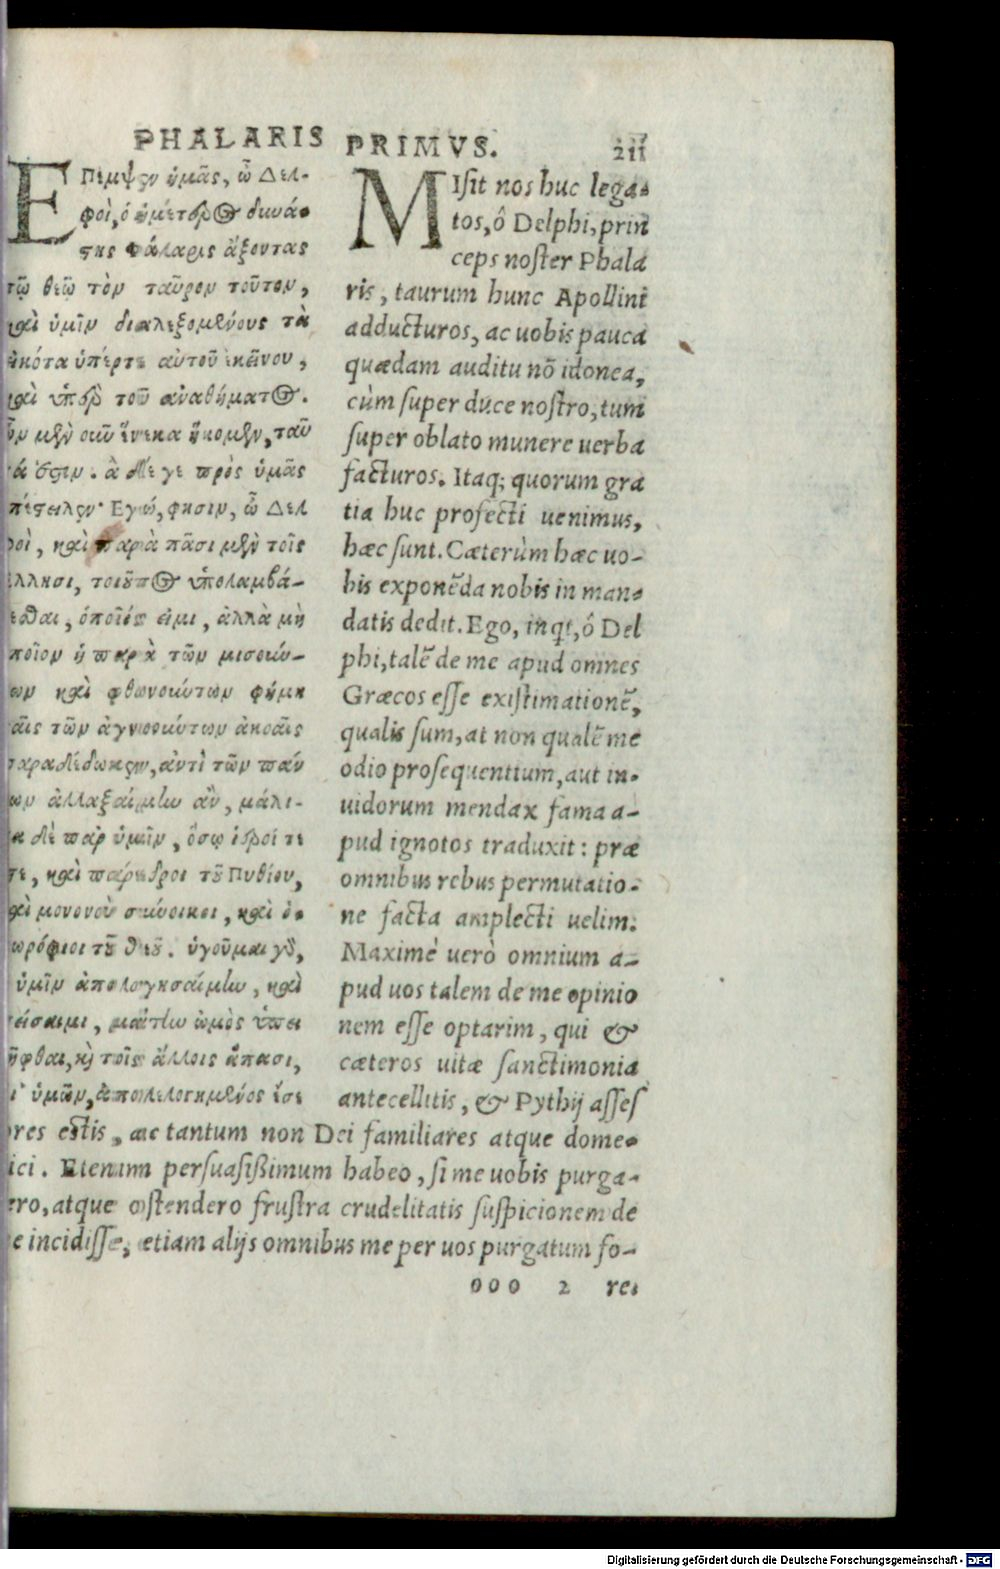 PHALARIS PRIMVS. 211
ΕΠεμψεν ὑμᾶς, ὦ Δελ-
φοὶ, ὁ ἡμέτερος δυνά-
στης Φάλαρις ἄξοντας
τῷ θεῷ τὸν ταῦρον τοῦτον,
καὶ ὑμῖν διαλεξομένους τὰ
εἰκότα ὑπέρτε αὐτοῦ ἐκείνου,
καὶ ὑπὲρ τοῦ ἀναθήματος.
ὧν μὲν οὖν ἕνεκα ἥκομεν, ταῦ
τά ἐστιν. ἃ δέ γε πρὸς ὑμᾶς
Εγώ, φησιν, ὦ Δελ
φοὶ, καὶ παρὰ πᾶσι μὲν τοῖς
ὑπολαμβά-
νεσθαι, ὁποῖός εἰμι, ἀλλὰ μὴ
ὁποῖον ἡ παρὰ τῶν μισούν-
των καὶ φθονούντων φήμη
ταῖς τῶν ἀγνοούντων ἀκοαῖς
παραδέδωκεν, ἀντὶ τῶν πάν
των ἀλλαξαίμην ἂν, μάλι-
στα δὲ παρ ὑμῖν, ὅσῳ ἱεροί τε
ἐστε, καὶ πάρεδροι τοῦ Πυθίου,
καὶ μονονοὺ σύνοικοι, καὶ ὁ-
μωρόφιοι τοῦ θεοῦ. ἡγοῦμαι γὰρ,
εἰ ὑμῖν ἀπολογησαίμην, καὶ
πείσαιμι, μάτην ὠμὸς ὑπει
λῆφθαι, καὶ τοῖς ἄλλοις ἅπασι,
δι' ὑμῶν, ἀπολελογημένος ἔσε
MIsit nos huc lega-
tos, ô Delphi, prin
ceps noster Phala
ris, taurum hunc Apollini
adducturos, ac uobis pauca
quædam auditu nō idonea,
cùm super duce nostro, tum
super oblato munere uerba
facturos. Itaq; quorum gra
tia huc profecti uenimus,
hæc sunt. Cæterùm hæc uo-
bis exponēda nobis in man-
datis dedit. Ego, inqt, ô Del
phi, talē de me apud omnes
Græcos esse existimationē,
qualis sum, at non qualē me
odio prosequentium, aut in-
uidorum mendax fama a-
pud ignotos traduxit: præ
omnibus rebus permutatio-
ne facta amplecti uelim.
Maximè uerò omnium a-
pud uos talem de me opinio
nem esse optarim, qui &
cæteros uitæ sanctimonia
antecellitis, & Pythij asses
ores estis, ac tantum non Dei familiares atque dome-
ici. Etenim persuasißimum habeo, si me uobis purga-
ero, atque ostendero frustra crudelitatis suspicionem de
e incidisse, etiam alijs omnibus me per uos purgatum fo-
ooo 2 re.
Digitalisierung gefördert durch die Deutsche Forschungsgemeinschaft - DFG